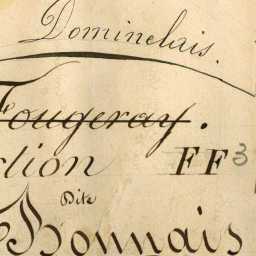 Dominelais.
Fougeray.
ction FF3
Dite
Bonnais